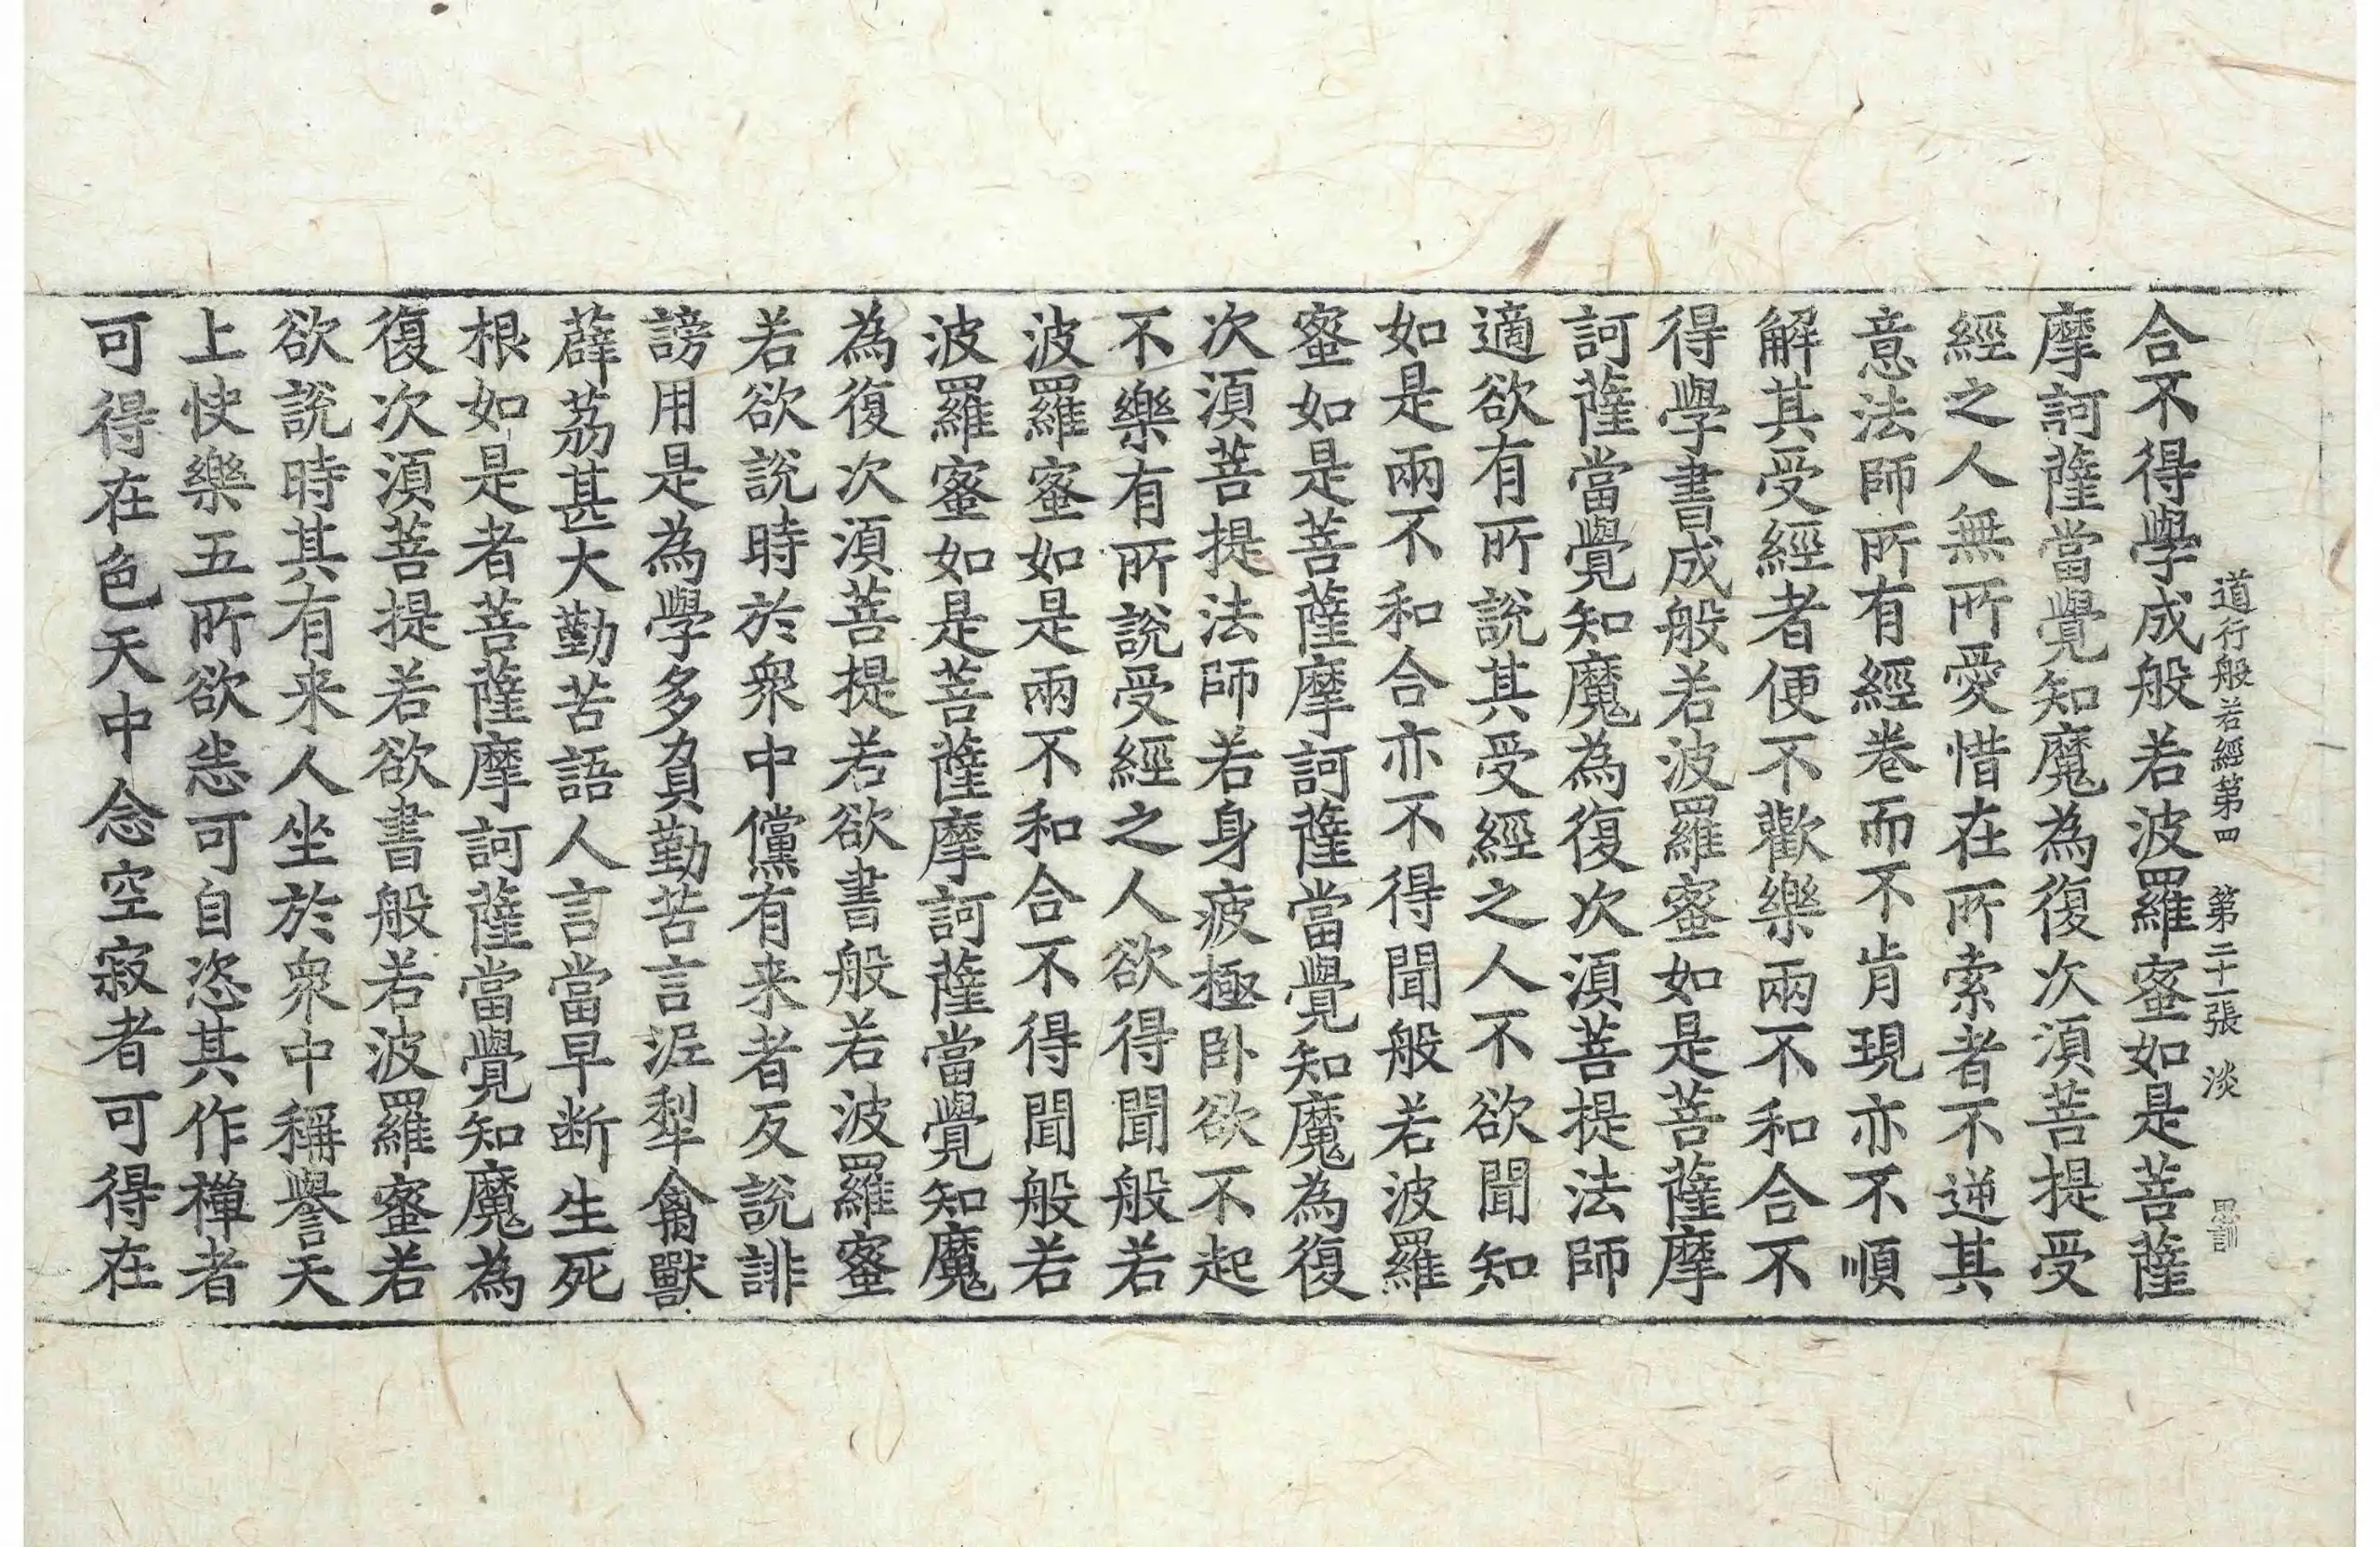 道行般若經第四　第二十一張　淡
合不得學成般若波羅蜜如是菩薩
摩訶薩當覺知魔為復次須菩提受
經之人無所愛惜在所索者不逆其
意法師所有經卷而不肯現亦不順
解其受經者便不歡樂兩不和合不
得學書成般若波羅蜜如是菩薩摩
訶薩當覺知魔為復次須菩提法師
適欲有所說其受經之人不欲聞知
如是兩不和合亦不得聞般若波羅
蜜如是菩薩摩訶薩當覺知魔為復
次須菩提法師若身疲極臥欲不起
不樂有所說受經之人欲得聞般若
波羅蜜如是兩不和合不得聞般若
波羅蜜如是菩薩摩訶薩當覺知魔
為復次須菩提若欲書般若波羅蜜
若欲說時於衆中儻有来者反說誹
謗用是為學多負勤苦言泥犁禽獸
薜荔甚大勤苦語人言當早断生死
根如是者菩薩摩訶薩當覺知魔為
復次須菩提若欲書般若波羅蜜若
欲說時其有来人坐於衆中稱譽天
上快樂五所欲恙可自恣其作禪者
可得在色天中念空寂者可得在